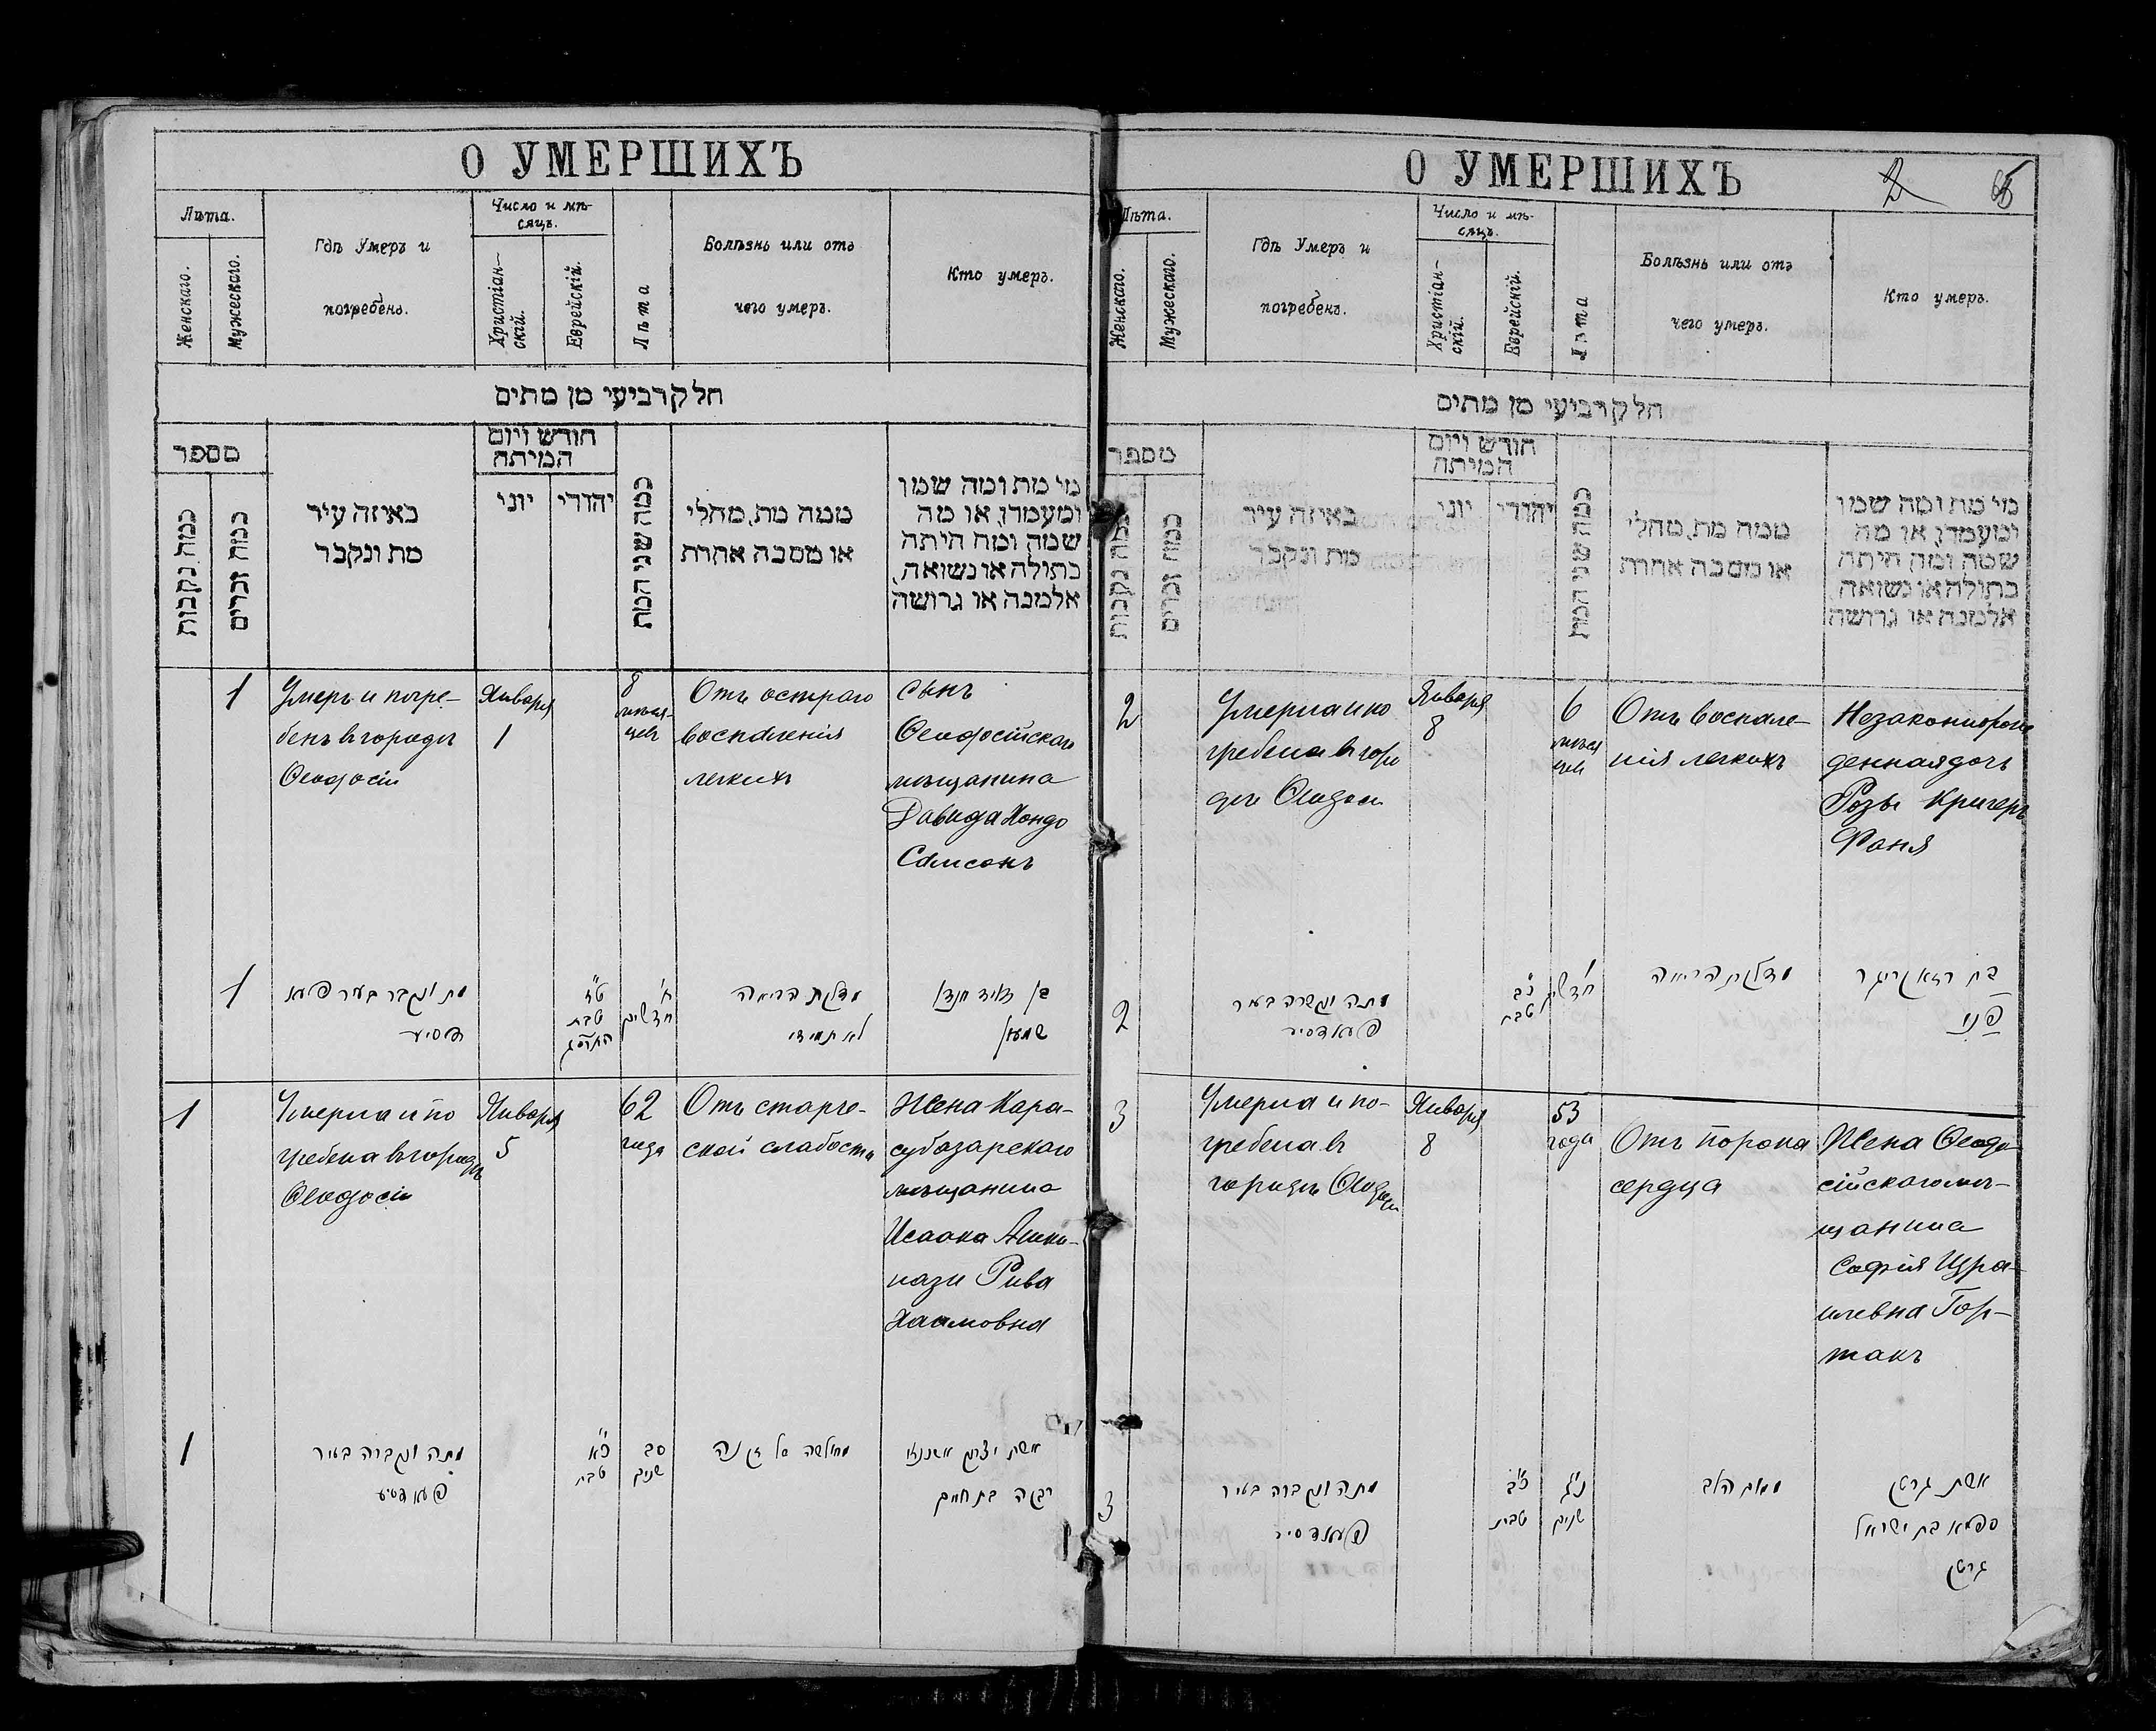 О УМЕРШИХЪ
Лѣта.
Женскаго.
Мужескаго.
Гдѣ Умеръ и
погребенъ.
Число и мѣ-
сяцъ.
Христіан-
скій.
Еврейскій.
Лѣта
Болѣзнь или отъ
чего умеръ.
Кто умеръ.
חלק רביעי מן מתים
מספר
כמה נקבות
כמה זכרים
באיזה עיר
מת ונקבר
חודש ויום
המיתה
יוני
יהודי
כמה שני המת
ממה מת, מחלי
או מסבה אחרת
מי מת ומה שמו
ומעמדו, או מה
שמה ומה היתה
בתולה או נשואה,
אלמנה או גרושה
1
Умеръ и погре-
бенъ въ городѣ
Ѳеодосіи
Января
1
8
мѣся-
цевъ
Отъ остраго
воспаленія
легкихъ
сынъ
Ѳеодосійскаго
мѣщанина
Давида Хондо
Самсонъ
1
מת ונקבר בעיר
ט״ז
טבת
ח׳
חדשים
מדלקת הריאה
בן דוד חנדו
1
Умерла и по
гребена въ городѣ
Ѳеодосіи
Января
5
62
года
Отъ старче-
ской слабости
Жена Кара-
субазарскаго
мѣщанина
Исаака Ашки-
нази Рива
Хаимовна
1
מתה ונקברה בעיר
כ״א
טבת
סב
שנים
מחולשה של זקנה
אשת יצחק אשכנזי
רבקה בת חיים
О УМЕРШИХЪ
2
Лѣта.
Женскаго.
Мужескаго.
Гдѣ Умеръ и
погребенъ.
Число и мѣ-
сяцъ.
Христіан-
скій.
Еврейскій.
Лѣта
Болѣзнь или отъ
чего умеръ.
Кто умеръ.
חלק רביעי מן מתים
מספר
כמה נקבות
כמה זכרים
באיזה עיר
מת ונקבר
חודש ויום
המיתה
יוני
יהודי
כמה שני המת
ממה מת, מחלי
או מסבה אחרת
מי מת ומה שמו
ומעמדו, או מה
שמה ומה היתה
בתולה או נשואה,
אלמנה או גרושה
2
Умерла и по
гребена въ горо
дѣ Ѳеодосіи
Января
8
6
мѣся
цевъ
Отъ воспале-
нія легкихъ
Незаконнорож
денная дочь
Розы Кригеръ
Фаня
2
מתה ונקברה בעיר
כ״ב
טבת
ו׳
חדשים
מדלקת הריאה
בת רוזא קריגר
פני
3
Умерла и по-
гребена въ
городѣ Ѳеодосіи
Января
8
53
года
Отъ порока
сердца
Жена Ѳеодо
сійскаго мѣ-
щанина
Софія Изра-
илевна Гор-
такъ
3
מתה ונקברה בעיר
כ״ב
טבת
נ״ג
שנים
הלב
אשת
בת ישראל